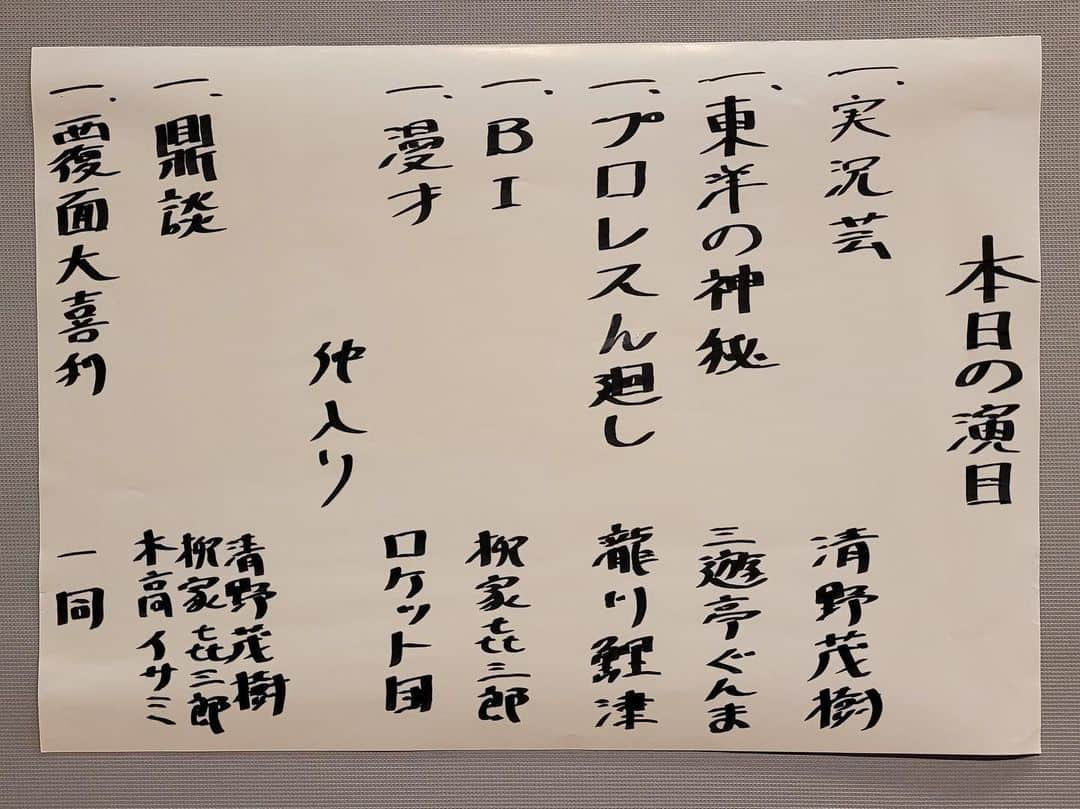 本日の演目
一、実況芸 清野茂樹
一、東洋の神秘 三遊亭ぐんま
一、プロレスん廻し 龍川鯉津
一、BI 柳家㐂三郎
一、漫才 ロケット団
仲入り
一、鼎談 清野茂樹
柳家㐂三郎
木高イサミ
一、覆面大喜利 一同